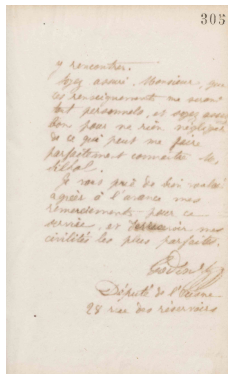 305
y rencontrer.
Soyez assuré, Monsieur, que
ces renseignements me seront
tout personnels, et soyez assez
bon pour ne rien négliger
de ce qui peut me faire
parfaitement connaître M.
Je vous prie de bien vouloir
agréer à l'avance mes
remerciements pour ce
service, et recevoir mes
civilités les plus parfaites.
Député de
28 rue des réservoirs